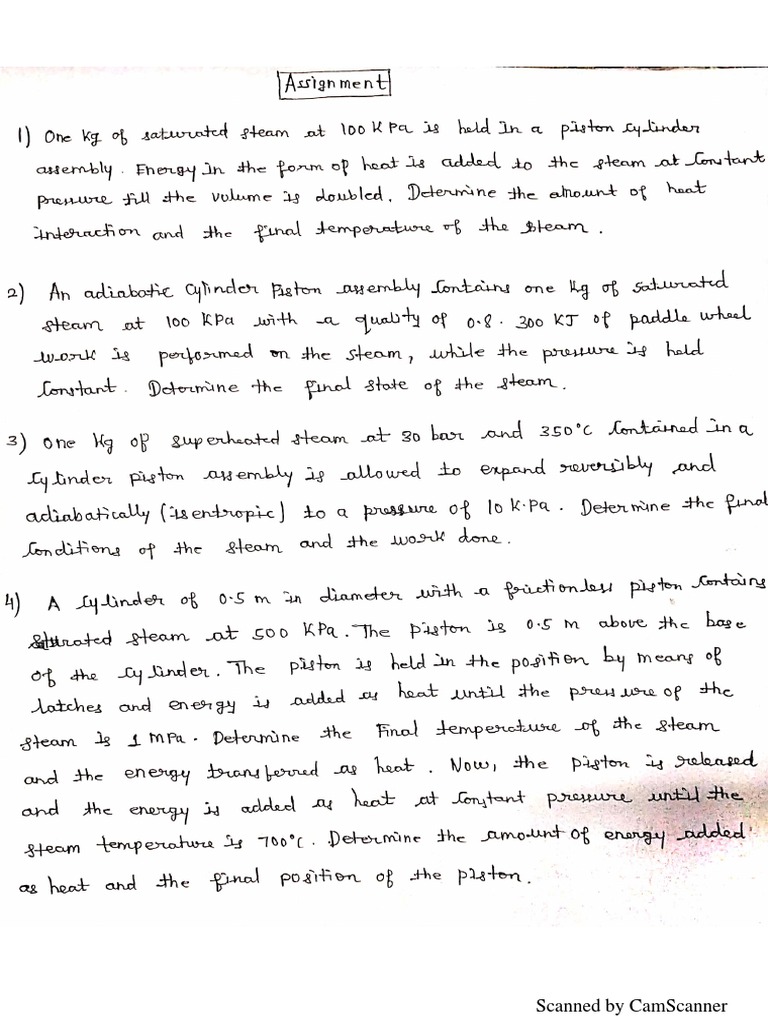 Assignment
1) One kg of saturated steam at 100 KPa is held in a piston cylinder
assembly. Energy in the form of heat is added to the steam at constant
pressure till the volume is doubled. Determine the amount of heat
interaction and the final temperature of the steam.
2) An adiabatic cylinder piston assembly contains one kg of saturated
steam at 100 KPa with a quality of 0.8. 300 KJ of paddle wheel
work is performed on the steam, while the pressure is held
constant. Determine the final state of the steam.
3) One kg of superheated steam at 30 bar and 350°C contained in a
cylinder piston assembly is allowed to expand reversibly and
adiabatically (isentropic) to a pressure of 10 K.Pa. Determine the final
conditions of the steam and the work done.
4) A cylinder of 0.5 m in diameter with a frictionless piston contains
saturated steam at 500 KPa. The piston is 0.5 m above the base
of the cylinder. The piston is held in the position by means of
latches and energy is added as heat until the pressure of the
steam is 1 MPa. Determine the Final temperature of the steam
and the energy transferred as heat. Now, the piston is released
and the energy is added as heat at constant pressure until the
steam temperature is 700°C. Determine the amount of energy added
as heat and the final position of the piston.
Scanned by CamScanner